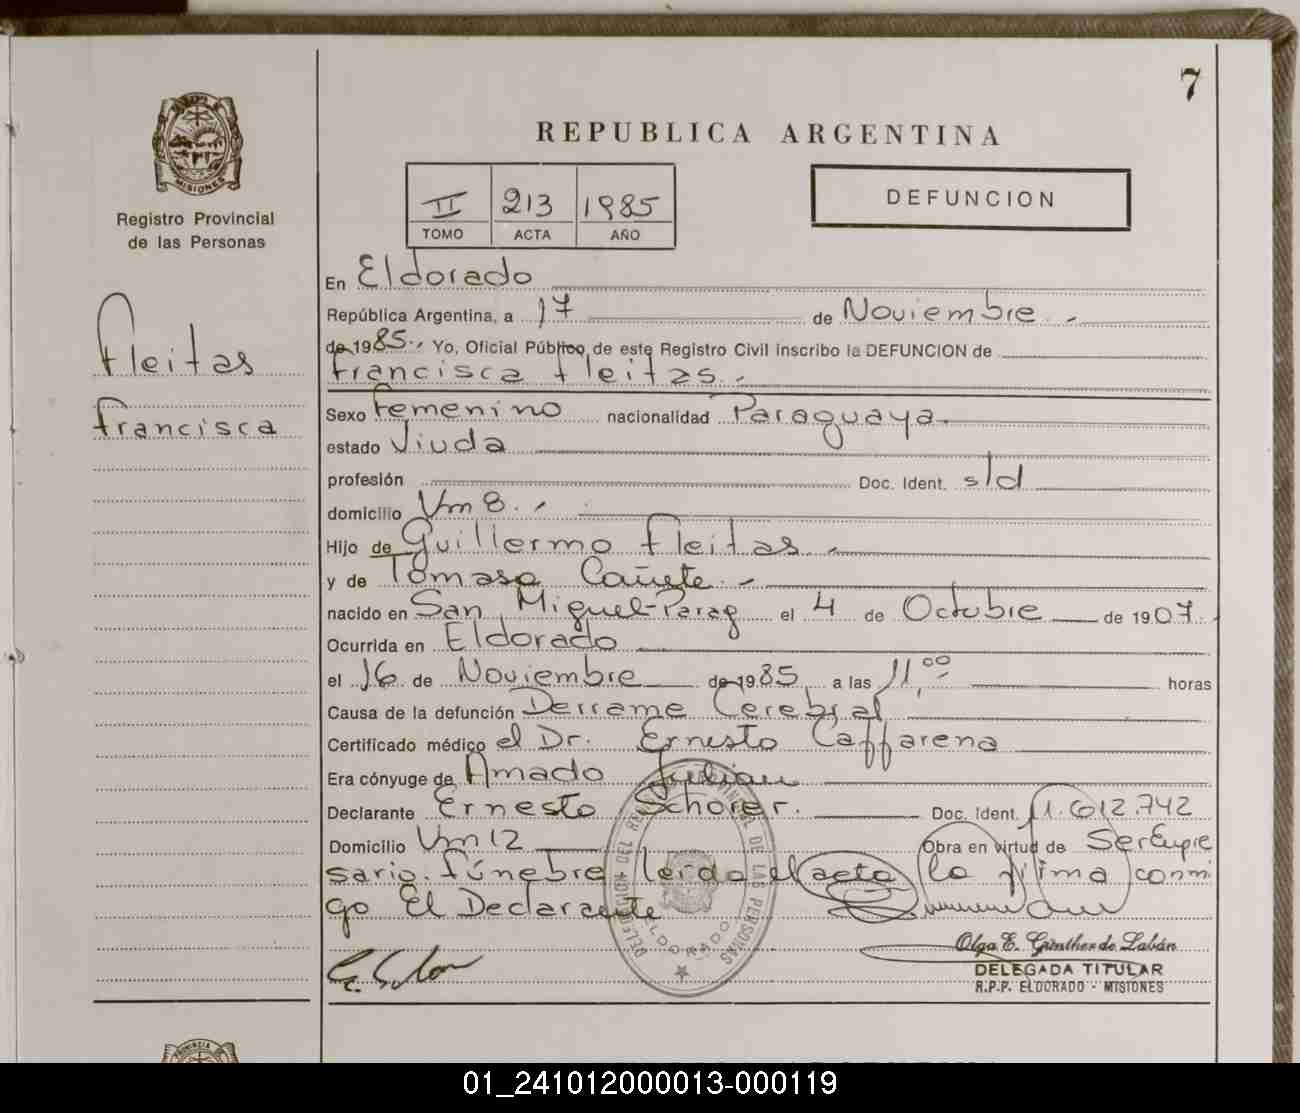 7
REPUBLICA ARGENTINA
MISIONES
Registro Provincial
de las Personas
II 213 1985
TOMO ACTA AÑO
DEFUNCION
Fleitas
Francisca
En Eldorado
República Argentina, a 17 de Noviembre
de 1985, Yo, Oficial Público de este Registro Civil inscribo la DEFUNCION de
Francisca Fleitas
Sexo Femenino nacionalidad Paraguaya
estado Viuda
profesión Doc. Ident. s/d
domicilio Vm 8
Hijo de Guillermo Fleitas
y de Tomasa Cañete
nacido en San Miguel-Parag el 4 de Octubre de 1907
Ocurrida en Eldorado
el 16 de Noviembre de 1985 a las 11,00 horas
Causa de la defunción Derrame Cerebral
Certificado médico el Dr. Ernesto Caffarena
Era cónyuge de Amado Julian
Declarante Ernesto Schorer. Doc. Ident. 1.612.742
Domicilio Vm 12 Obra en virtud de Ser Empre
sario fúnebre leida el acta la firma conmi
go El Declarante
DELEGACION DEL REGISTRO PROVINCIAL DE LAS PERSONAS
ELDORADO
Olga E. Günther de Labán
DELEGADA TITULAR
R.P.P. ELDORADO - MISIONES
PROVINCIA
01_241012000013-000119